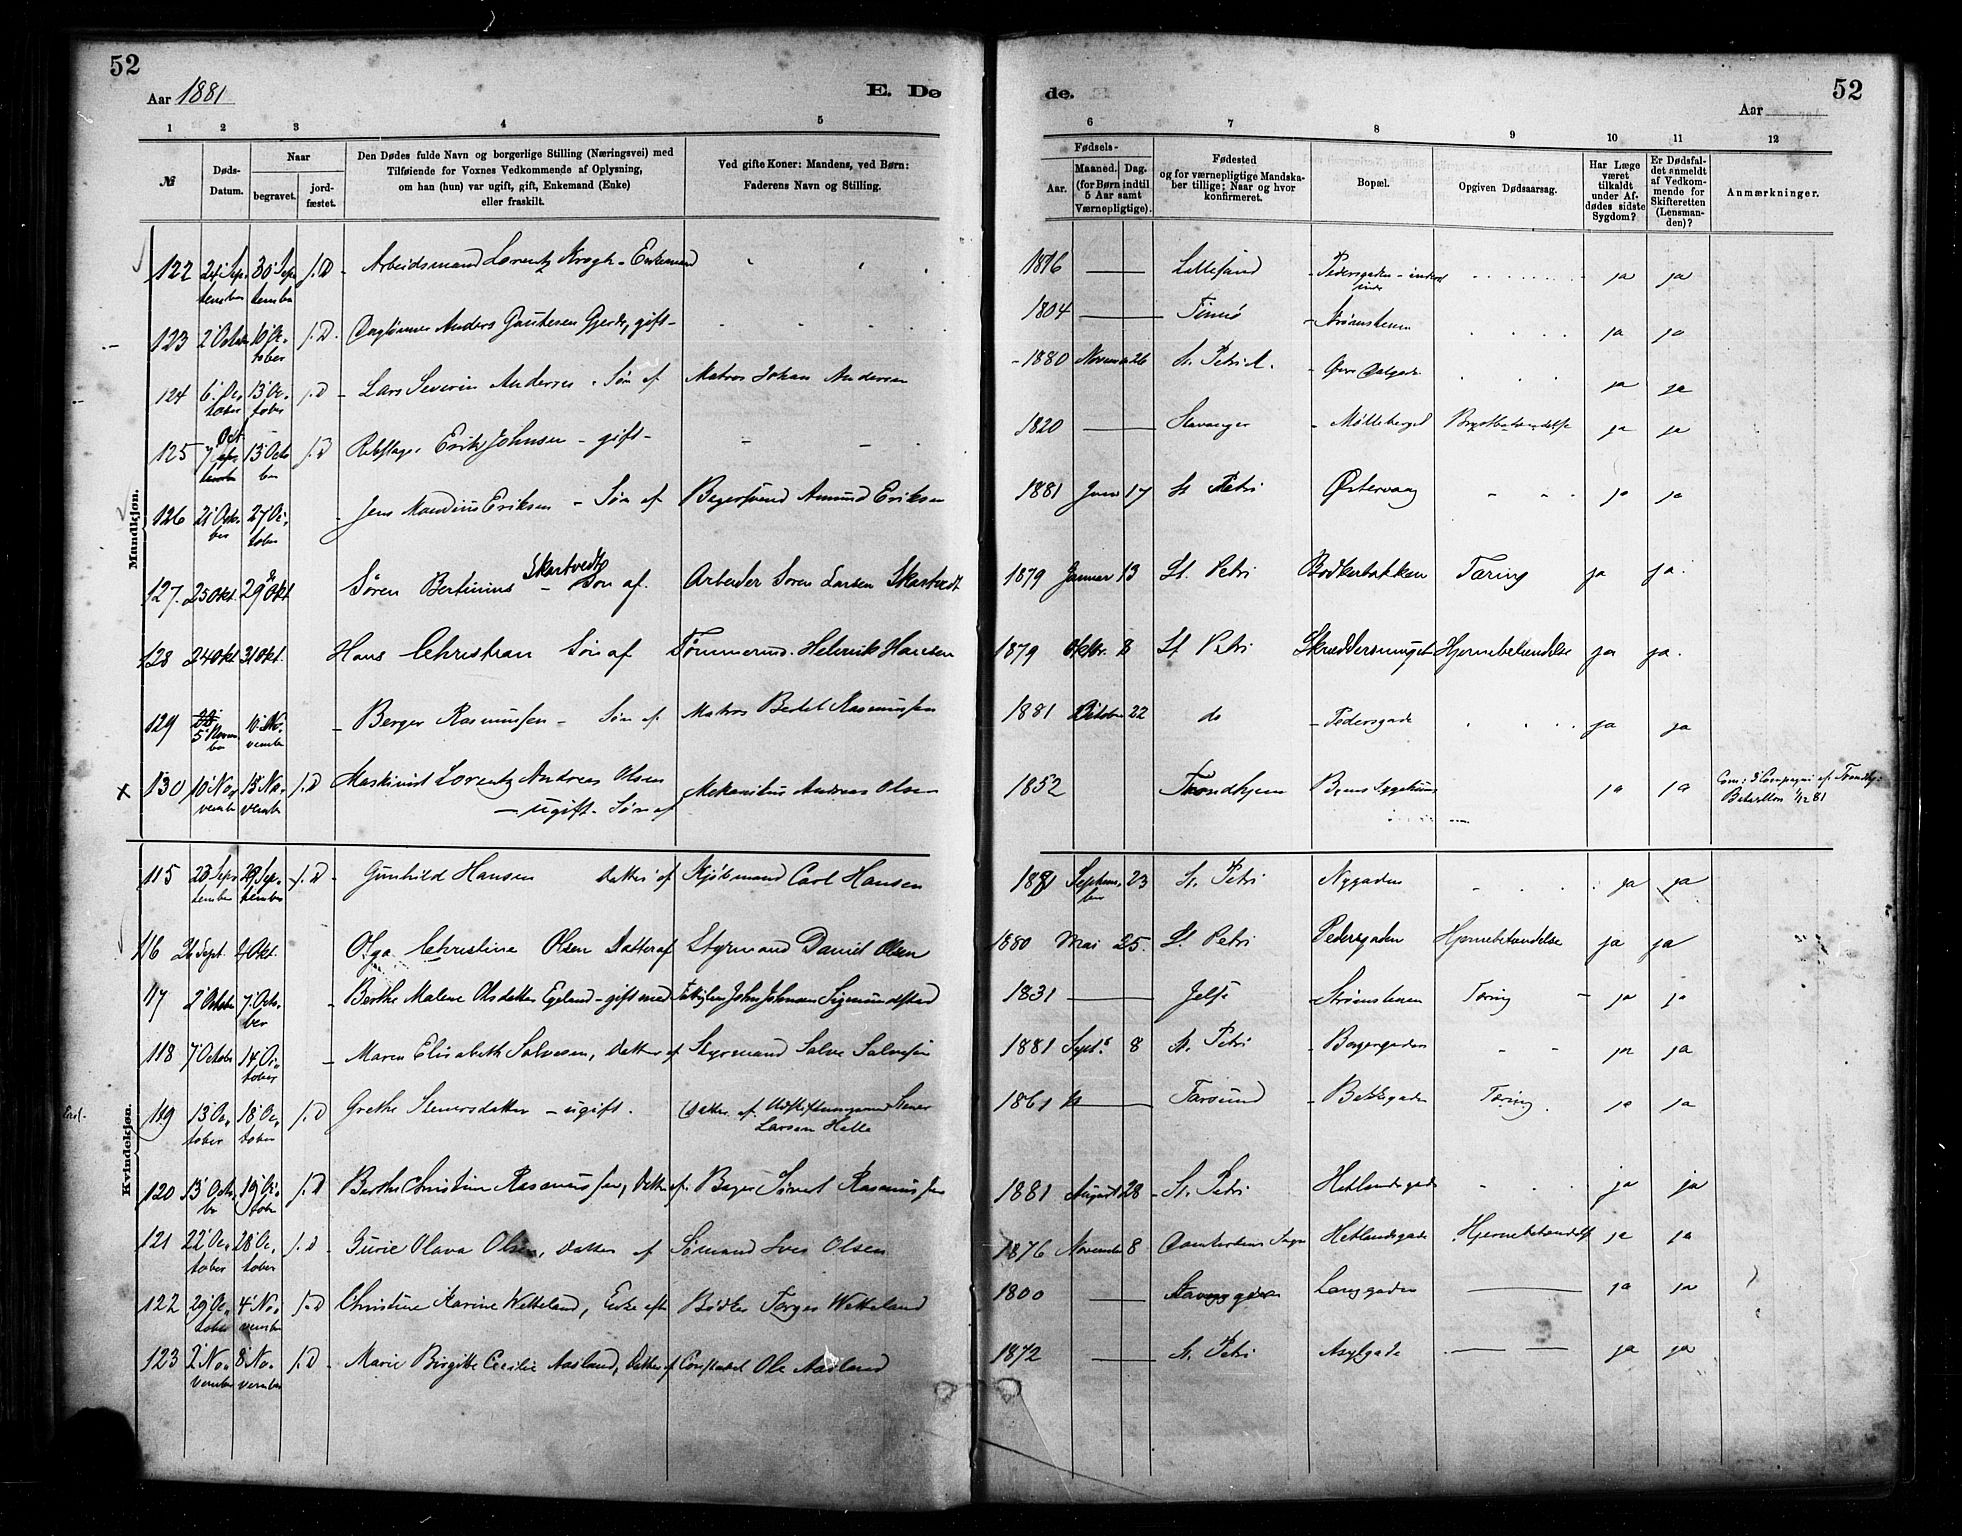 52
Aar 1881
E. Dø
de.
52
Aar
1 2 3 4 5 6 7 8 9 10 11 12
№
Døds-Datum.
Naar
begravet. jordfæstet.
Den Dødes fulde Navn og borgerlige Stilling (Næringsvei) med
Tilføiende for Voxnes Vedkommende af Oplysning,
om han (hun) var ugift, gift, Enkemand (Enke)
eller fraskilt.
Ved gifte Koner: Mandens, ved Børn:
Faderens Navn og Stilling.
Fødsels-
Aar. Maaned. Dag.
(for Børn indtil
5 Aar samt
Værnepligtige).
Fødested
og for værnepligtige Mandskaber tillige: Naar og hvor
konfirmeret.
Bopæl.
Opgiven Dødsaarsag.
Har Læge
været
tilkaldt
under Afdødes sidste
Sygdom?
Er Dødsfaldet anmeldt
af Vedkommende for
Skifteretten
(Lensmanden)?
Anmærkninger.
Mandkjøn.
122 24 September 30 September j.D Arbeidsmand Lorentz Krogh - Enkemand 1816 Lillesand Pedersgaden ja ja
123 2 October 10 October j.D. Anders Gautesen Gjerde, gift 1804 Strømstenen ja ja
124 6 October 13 October j.D Lars Severin Andersen - Søn af Matros Johan Andersen 1880 Novem 26 St. Petri ja ja
125 7 Oct 13 October j.D Rebslager Erik Johnsen - gift 1820 Stavanger Mølleberged Brystbetændelse ja ja
126 21 October 27 October Jens Eriksen - Søn af Amund Eriksen 1881 17 St Petri Østervaag ja ja
127. 25 Okt. 29 Okt Søren Bertinius Skartvedt - Søn af. Arbeider Soren Larsen Skartvedt 1879 Januar 13 St. Petri Bødkerbakken Tæring ja ja.
128 24 Okt 31 Okt. Hans Christian Søn af Tømmermd. Helmik Hansen 1879 Oktbr. 8 St Petri Skræddersmuget Hjernebetændelse ja ja.
129 5 November 10 November Berger Rasmussen - Søn af Matros Bertel Rasmussen 1881 October 22 do Pedersgade ja ja
130 10 November 15 November j.D Maskinist Lorentz Andreas Olsen - ugift - Søn af Mekanikus Andreas Olsen 1852 Trondhjem Byens Sygehuus ja ja
Com: 3 Compagni af Trondhj:
Batallon 1/12 81
Kvindekjøn.
115 23 September 29 September j.D Gunhild Hansen Datter af Kjøbmand Carl Hansen 1881 September 23 St. Petri Nygaden ja ja
116 26 Sept. 2 Okt. Olga Christine Olsen Datter af Styrmand Daniel Olsen 1880 Mai 25. St. Petri Pedersgaden Hjernebetændelse ja ja
117 2 October 7 October Berthe Malene Olsdatter Egeland - gift med John Johnsen Sigmundstad 1831 Jelse Strømstenen Tæring ja ja
118 7 October 14 October Maren Elisabeth Salvesen, Datter af Styrmand Salve Salvesen 1881 Septr 8 St. Petri Bergergaden ja ja
119 13 October 18 October j.D Grethe Stenersdatter - ugift. Datter af Udskiftningsmand Stener Larsen Helle 1861 Farsund Bakkegaden Tæring ja ja
120 13 October 19 October j.D Berthe Christine Rasmussen, Datter af Bager Rasmussen 1881 August 28 St. Petri Hetlandsgade ja ja
121 22 October 28 October j.D Gurie Olava Olsen, Datter af Sømand Iver Olsen 1876 November 8 Hetlandsgade Hjernebetændelse ja ja
122 29 October 4 November j.D Christine Karine Wetteland, Enke efter Bødker Torger Wetteland 1800 Langgaden ja ja
123 2 November 8 November j.D Marie Birgitte Cecilie Aasland, Datter af Constabel Ole Aasland 1872 St. Petri Asylgade ja ja